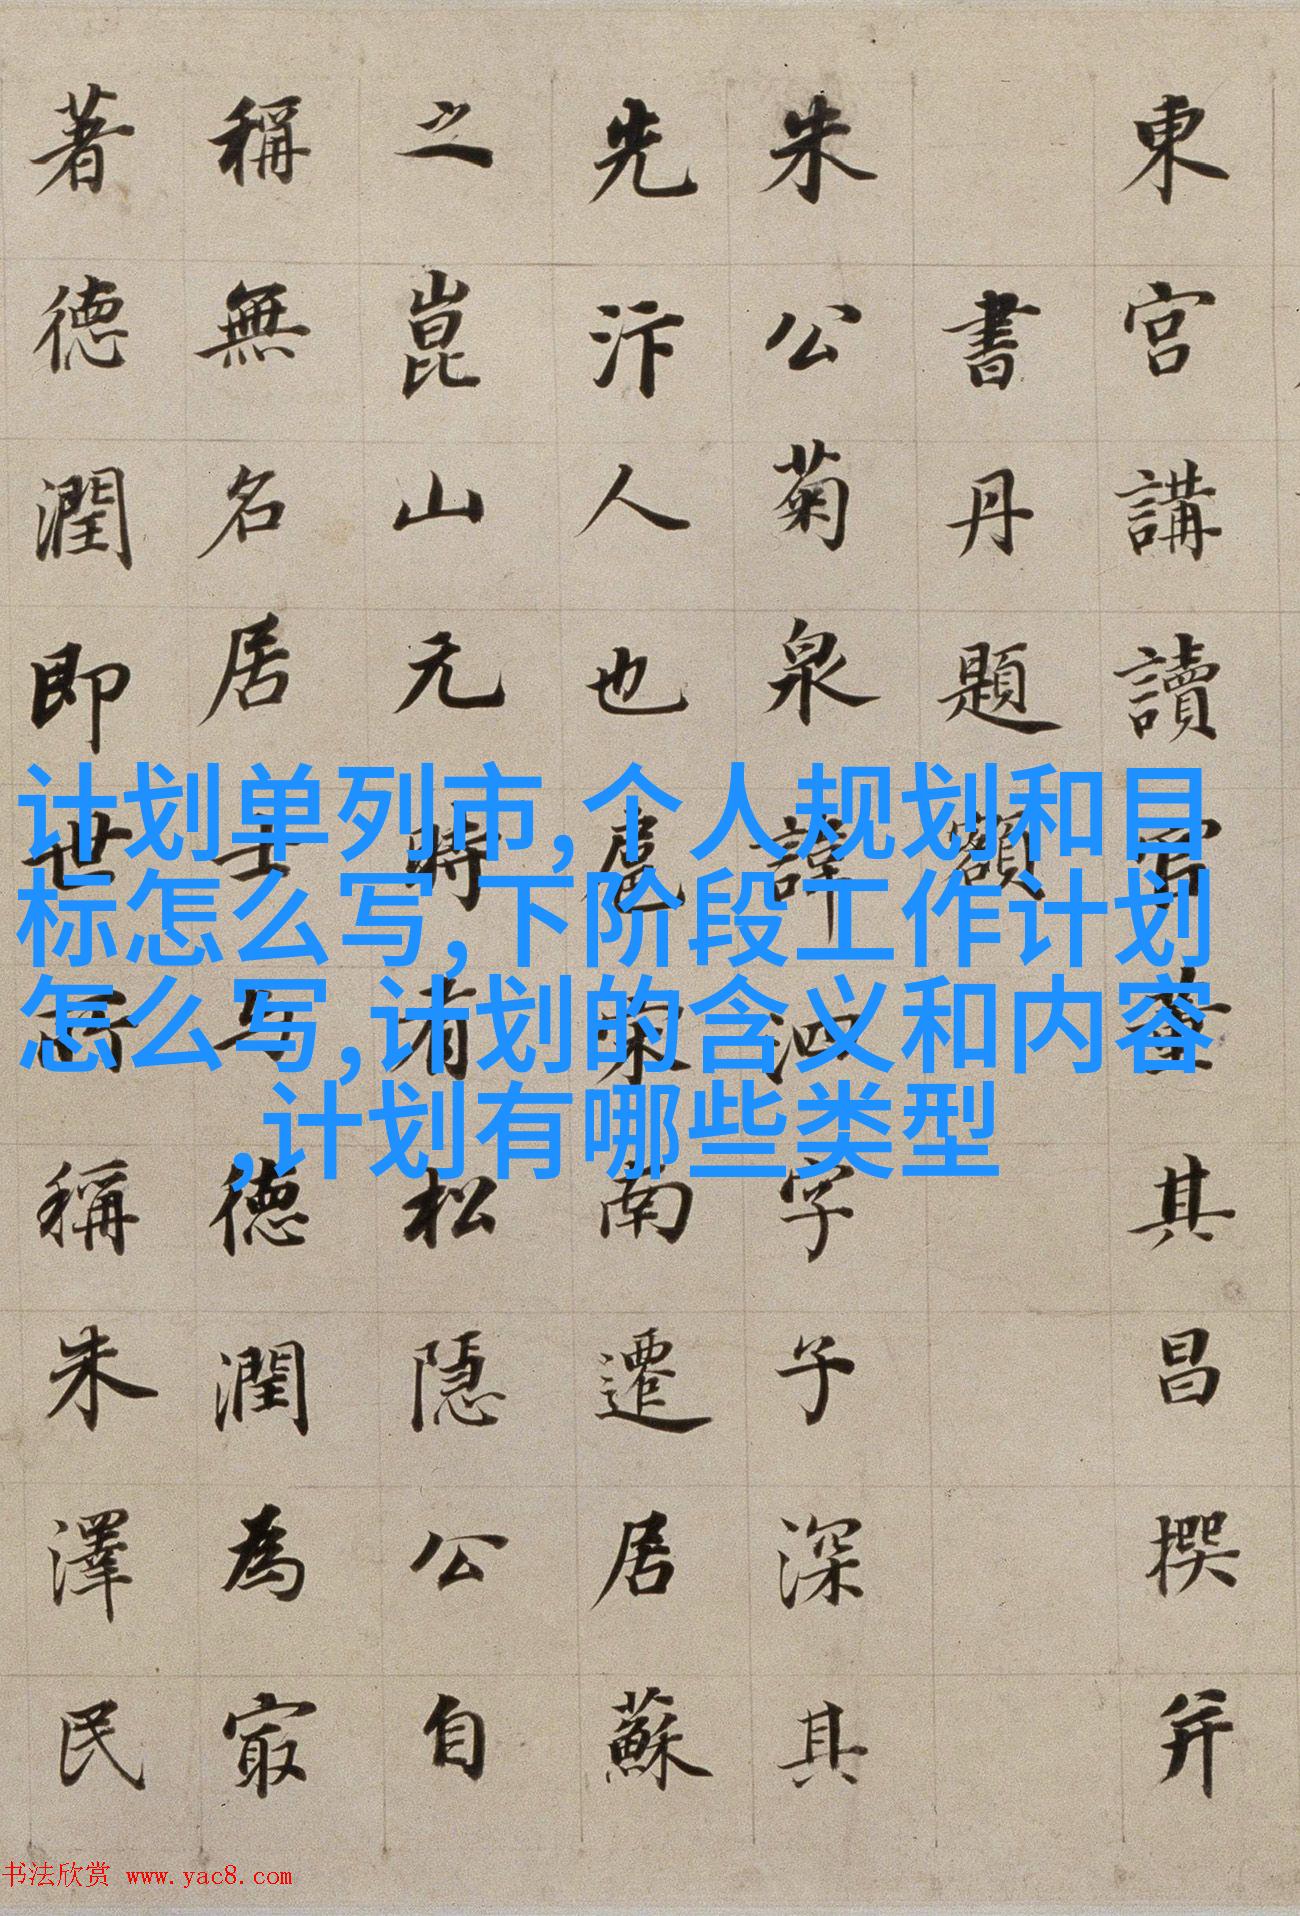 東宮講讀官董其昌撰并
書丹題額
朱公菊泉諱泗字子深其
先汴人也扈宋南遷居蘇
之崑山元時有松隱公自
稱無名居士与德潤為冣
著德潤即世所稱朱澤民
计划单列市,个人规划和目
标怎么写,下阶段工作计划
怎么写,计划的含义和内容
,计划有哪些类型
书法欣赏 www.yac8.com